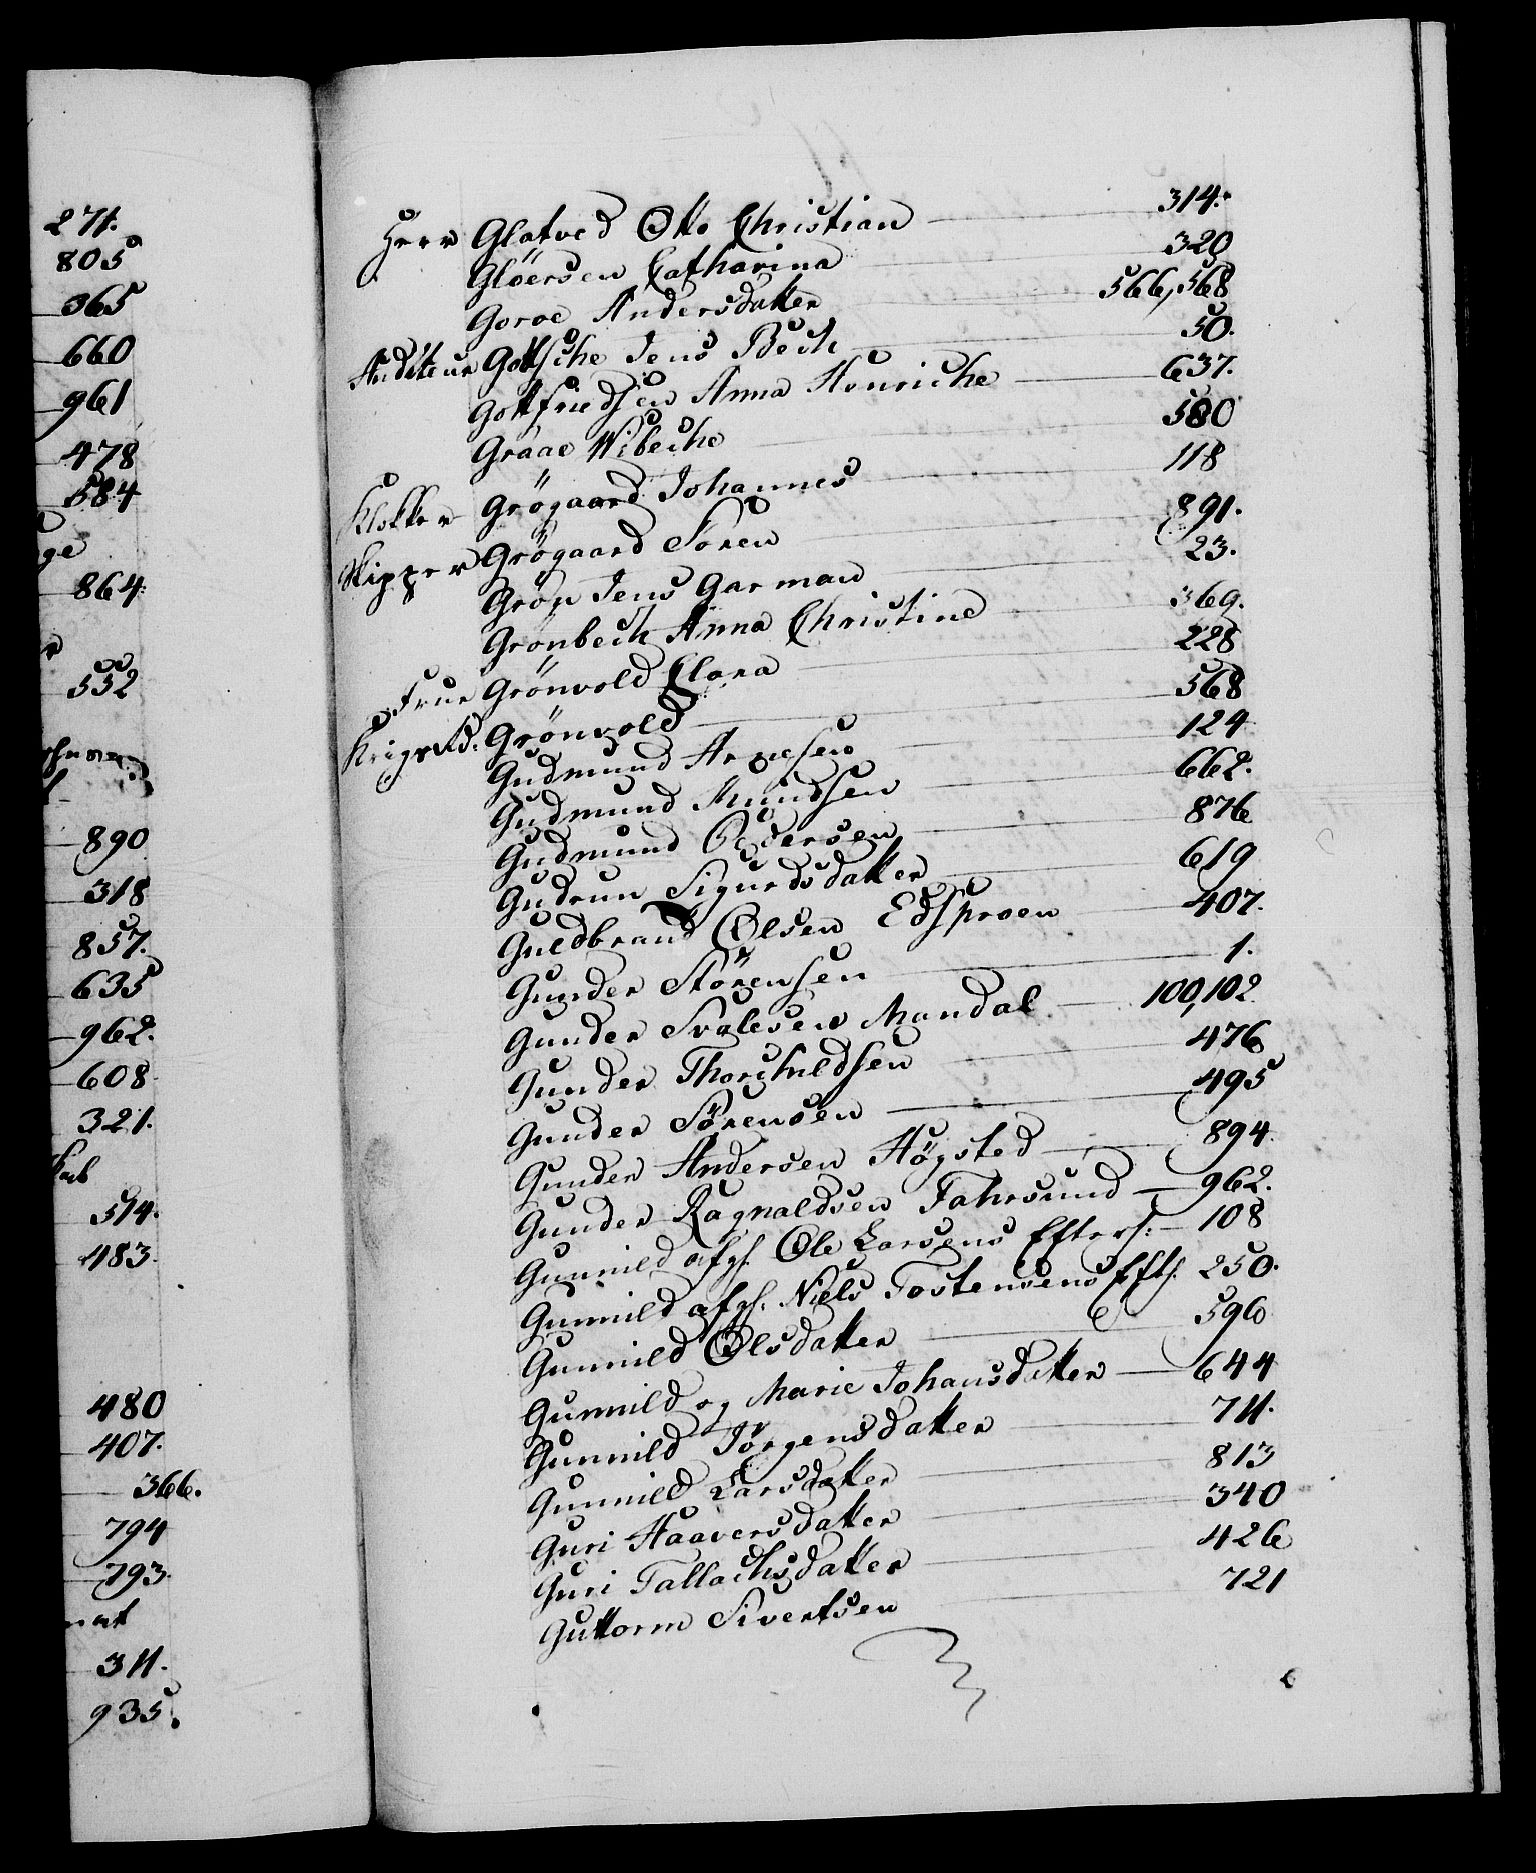 271.
805
365
660
961
478
584
ge
864.
552
890
318
857.
635
962.
608
321.
514.
483.
480
407.
366.
794
793.
311.
935.
Herr Glatved Otto Christian 314.
Glöersen Catharina 320
Goroe Andersdatter 566, 568
Auditeur Gottsche Jens Bech 50.
Gottfriedsen Anna Henriche 637.
Graae Wibeche 580
Klokker Grögaard Johannes 118
Skipper Grögaard Sören 891.
Grön Jens Garman 23.
Grönbech Anna Christine 369.
Frue Grönvold Clara 228
Krigsrd: Grönvold 568
Gudmund Arnesen 124
Gudmund Knudsen 662.
Gudmund Pedersen 876
Gudrun Sigurdsdatter 619
Guldbrand Olsen Edsproen 407.
Gunder Störensen 1.
Gunder Svalesen Mandal 100, 102
Gunder Thorchildsen 476
Gunder Sörensen 495
Gunder Andersen Högsted 894
Gunder Ragnaldsen Fahrsund 962.
Gunnild afgl. Ole Larsens Efterl: 108
Gunnild afgl. Niels Tostensens Eftl. 250.
Gunnild Olsdatter 596
Gunnild og Marie Johansdatter 644
Gunnild Jörgensdatter 711.
Gunnild Larsdatter 813
Guri Haaversdatter 340
Guri Tallachsdatter 426
Guttorm Sivertsen 721